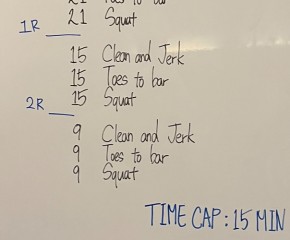 21 Toes to bar
21 Squat
1R
15 Clean and Jerk
15 Toes to bar
2R 15 Squat
9 Clean and Jerk
9 Toes to bar
9 Squat
TIME CAP: 15 MIN